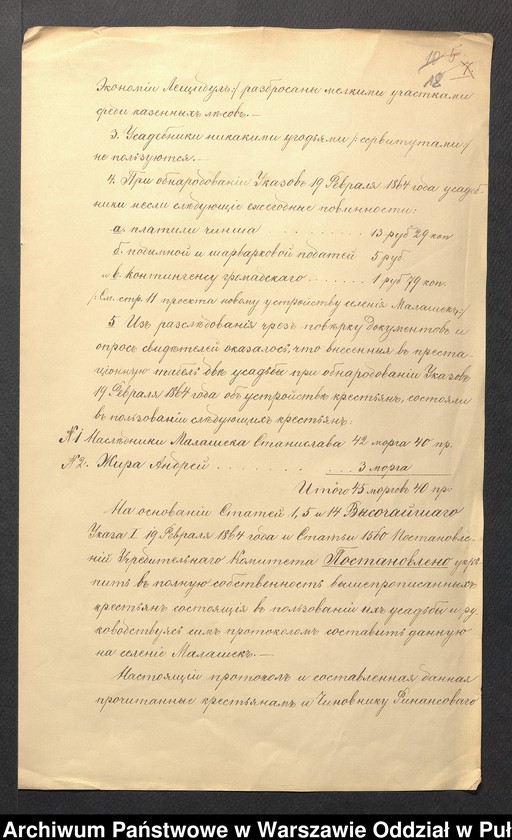 10 5 X
18
Экономіи Лещидулъ:/ разбросаны мелкими участками
среди казенныхъ лѣсовъ.—
3. Усадебники никакими угодьями /:сервитутами:/
не пользуются.—
4. При обнародованіи Указовъ 19 Февраля 1864 года усадеб-
ники несли слѣдующіе ежегодные повинности:
а. платили чинша . . . . . . . . . 13 руб 29 коп
б. подымной и шарварковой податей 5 руб
и в. контингенсу громадскаго . . . . . . . 1 руб 79 коп.
/:См. стр. 11 проекта новому устройству селенія Малашекъ:/
5 Изъ разслѣдованія чрезъ повѣрку документовъ и
опросъ свидѣтелей оказалось, что внесенныя въ преста-
ціонную табель двѣ усадьбы при обнародованіи Указовъ
19 Февраля 1864 года объ устройствѣ крестьянъ, состояли
въ пользованіи слѣдующихъ крестьянъ:
№ 1 Наслѣдники Малашека Станислава 42 морга 40 пр.
№ 2. Жира Андрей . . . . . . . . . . . . 3 морга
Итого 45 морговъ 40 пр.
На основаніи Статей 1, 5 и 14 Высочайшаго
Указа I 19 Февраля 1864 года и Статьи 1560 Постановле-
ній Учредительнаго Комитета Постановлено укрѣ-
пить въ полную собственность вышепрописанныхъ
крестьянъ состоящія въ пользованіи ихъ усадьбы и, ру-
ководствуясь симъ протоколомъ составить данную
на селеніе Малашекъ.—
Настоящій протоколъ и составленная данная
прочитанные крестьянамъ и Чиновнику Финансоваго
Archiwum Państwowe w Warszawie Oddział w Puł